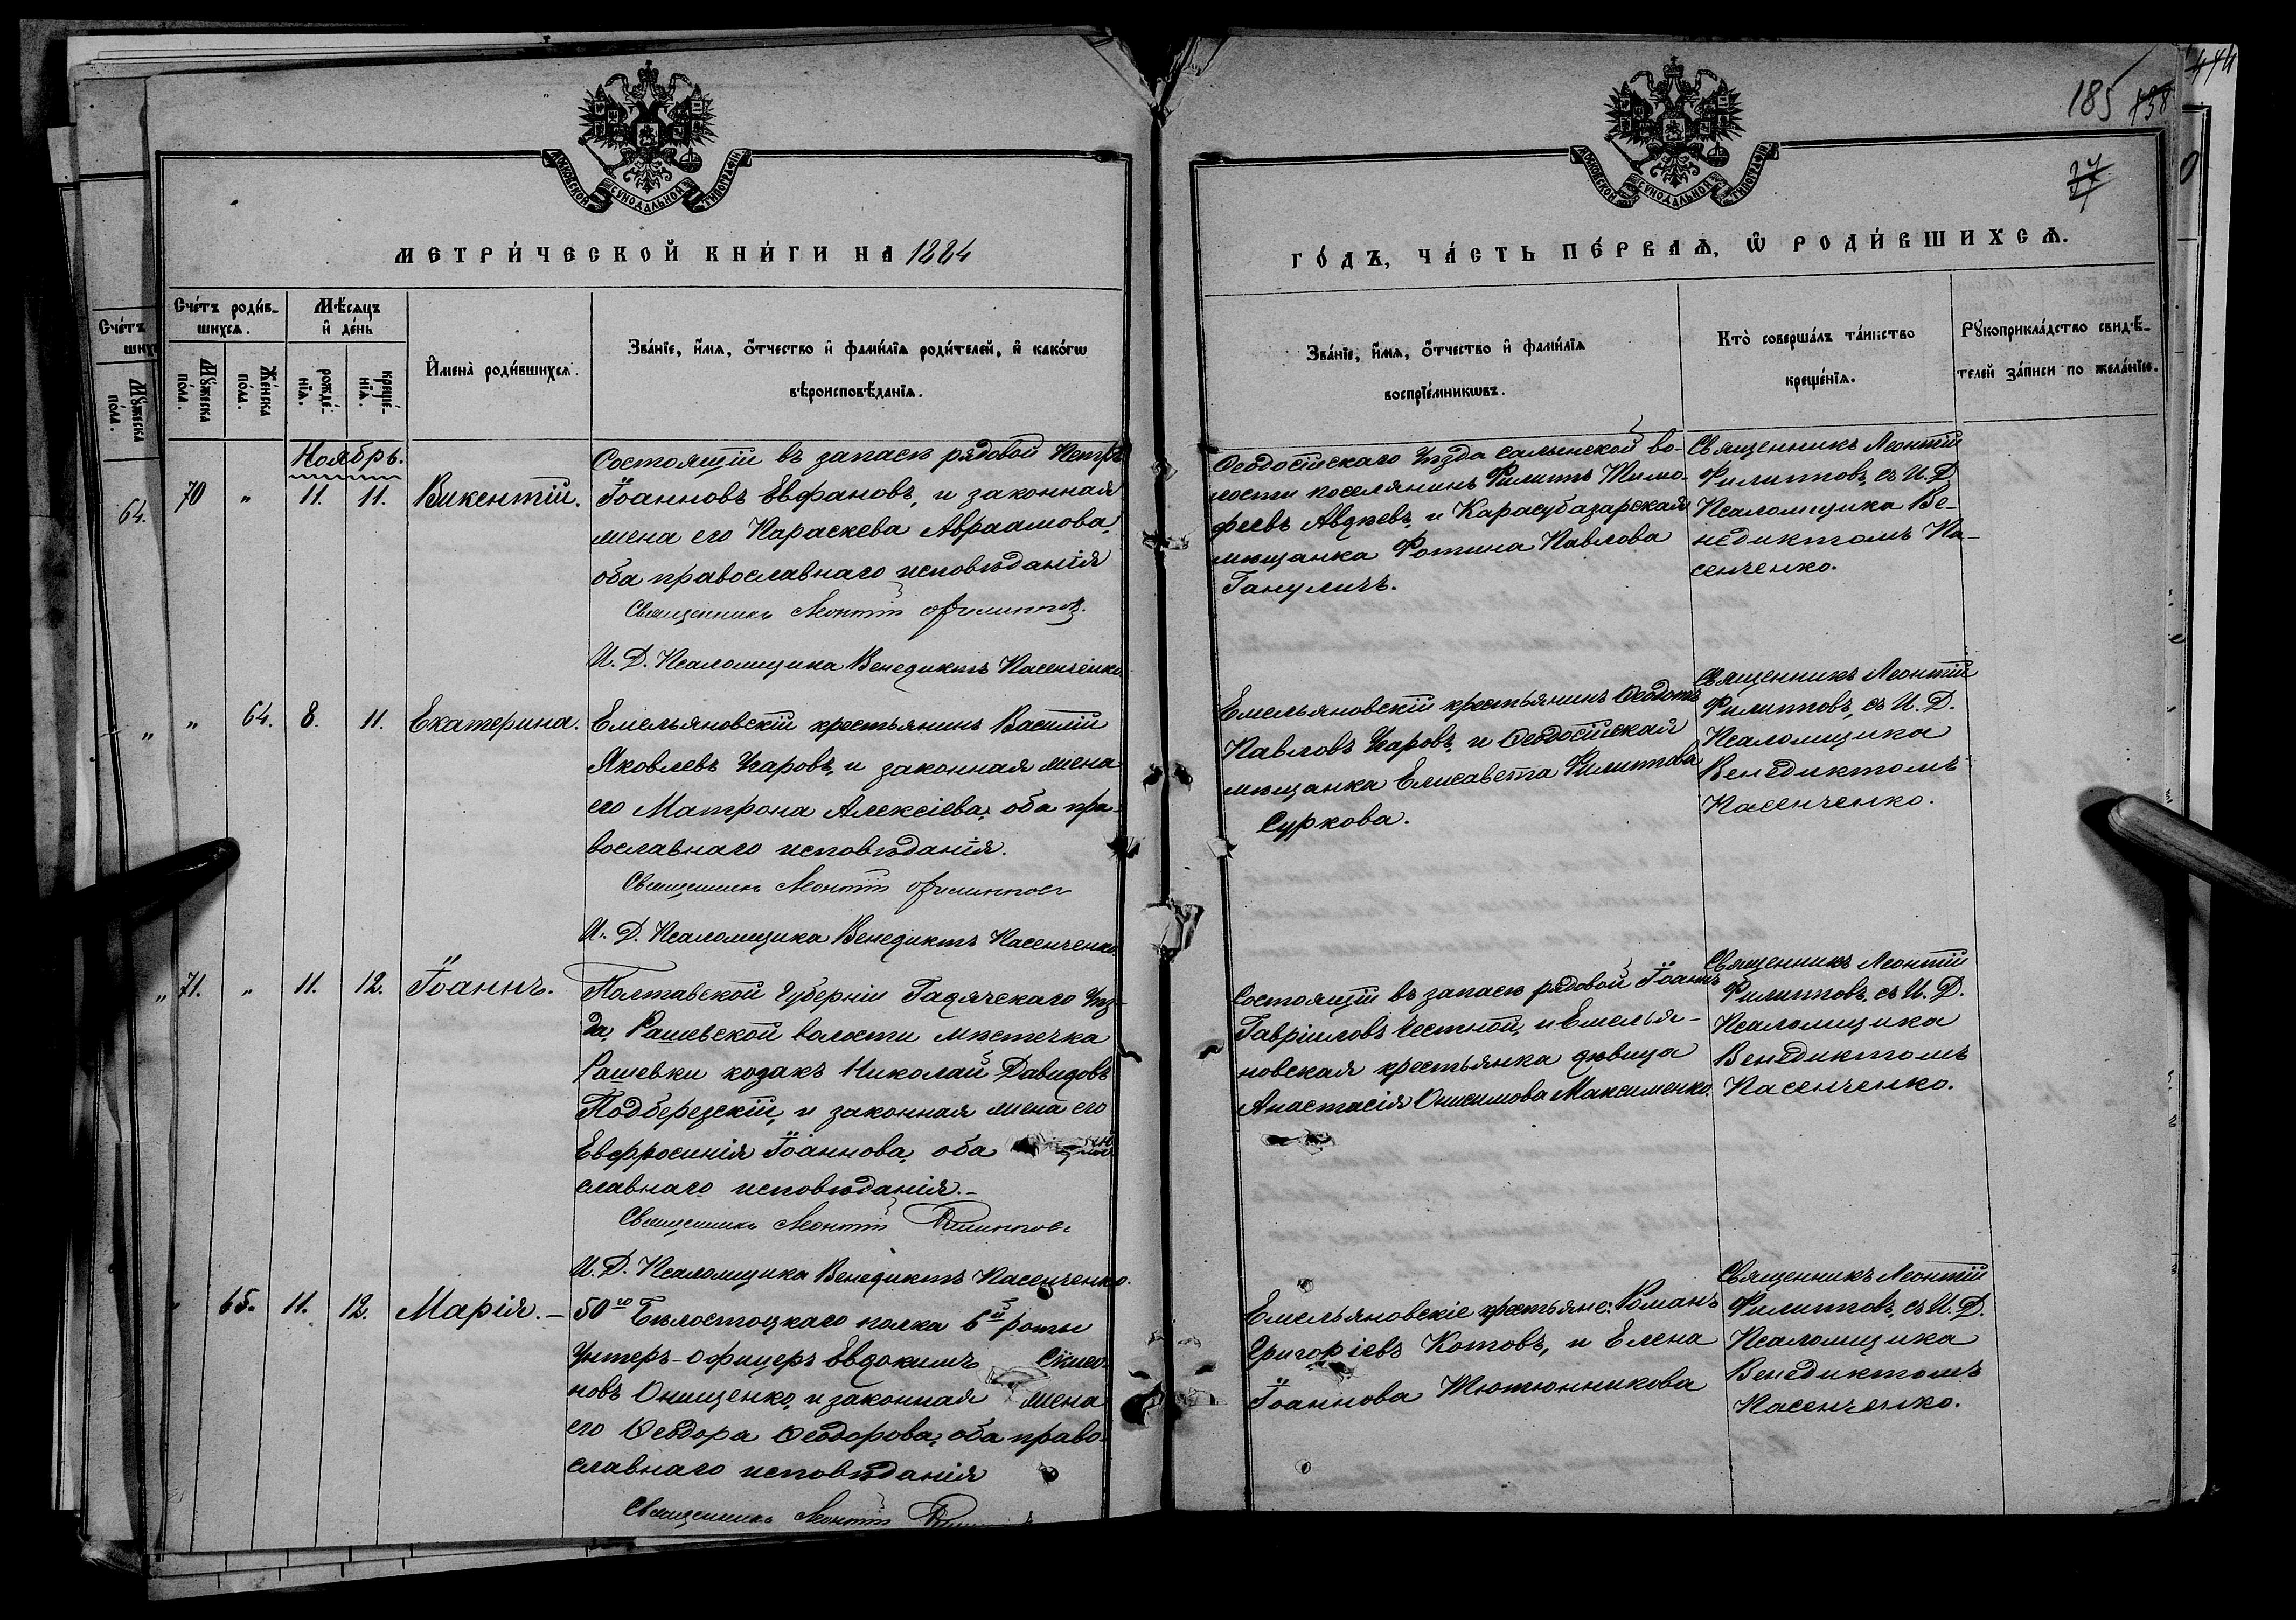 МОСКОВСКОЙ СУНОДАЛЬНОЙ ТИПОГРАФІИ
МЕТРИ́ЧЕСКОЙ КНИ́ГИ НА 1884
Сче́тъ роди́в-
шихсѧ.
Мѣ́сѧцъ
и҆ де́нь
Мꙋ́жеска
по́ла.
Же́нска
по́ла.
рожде́-
нїѧ.
креще́-
нїѧ.
И҆мена̀ роди́вшихсѧ.
Зва́нїе, и҆́мѧ, ѻ҆́тчество и҆ фами́лїѧ роди́телей, и҆ како́гѡ
вѣроисповѣ́данїѧ.
Ноябрь.
70 " 11. 11. Викентій.
Состоящій въ запасѣ рядовой Петръ
Іоанновъ Евфановъ, и законная
жена его Параскева Авраамова,
оба православнаго исповѣданія
Священникъ Леонтій Филиппов.
И. Д. Псаломщика Венедиктъ Пасенченко.
" 64. 8. 11. Екатерина.
Емельяновскій крестьянинъ Василій
Яковлевъ Уваровъ, и законная жена
его Матрона Алексіева, оба пра-
вославнаго исповѣданія.
Священникъ Леонтій Филиппов
И. Д. Псаломщика Венедиктъ Пасенченко.
71. " 11. 12. Іоаннъ.
Полтавской Губерніи Гадячскаго Уѣз-
да, Рашевской волости мѣстечка
Рашевки козакъ Николай Давидовъ
Подберезскій, и законная жена его
Евфросинія Іоаннова, оба
славнаго исповѣданія.-
Священникъ Леонтій Филиппов
И. Д. Псаломщика Венедиктъ Пасенченко.
65. 11. 12. Марія.-
50го Бѣлостоцкаго полка 6й роты
Унтеръ-Офицеръ Евдокимъ
новъ Онищенко, и законная жена
его Ѳеодора Ѳеодорова, оба право-
славнаго исповѣданія
Священникъ Леонтій
Сче́тъ
Мꙋ́жеска
по́ла.
64.
МОСКОВСКОЙ СУНОДАЛЬНОЙ ТИПОГРАФІИ
185 138
27
ГО́ДЪ, ЧА́СТЬ ПЕ́РВАѦ, Ѽ РОДИ́ВШИХСѦ.
Зва́нїе, и҆́мѧ, ѻ҆́тчество и҆ фами́лїѧ
воспрїе́мникѡвъ.
Кто̀ соверша́лъ та́инство
креще́нїѧ.
Рꙋкоприкла́дство свидѣ́-
телей за́писи по жела́нїю.
Ѳеодосійскаго Уѣзда Салынской во-
лости поселянинъ Филиппъ Тимо-
феевъ Авдѣевъ, и Карасубазарская
мѣщанка Фотина Павлова
Гануличъ.
Священникъ Леонтій
Филипповъ, съ И. Д.
Псаломщика Ве-
недиктомъ Па-
сенченко.
Емельяновскій крестьянинъ Ѳеодотъ
Павловъ Уваровъ, и Ѳеодосійская
мѣщанка Елисавета Филиппова
Суркова.
Священникъ Леонтій
Филипповъ, съ И. Д.
Псаломщика
Венедиктомъ
Пасенченко.
Состоящій въ запасѣ рядовой Іоаннъ
Гавріиловъ Честной, и Емелья-
новская крестьянка дѣвица
Анастасія Онисимова Максименко.
Священникъ Леонтій
Филипповъ, съ И. Д.
Псаломщика
Венедиктомъ
Пасенченко.
Емельяновскіе крестьяне: Романъ
Григоріевъ Котовъ, и Елена
Іоаннова Тютюнникова
Священникъ Леонтій
Филипповъ, съ И. Д.
Псаломщика
Венедиктомъ
Пасенченко.